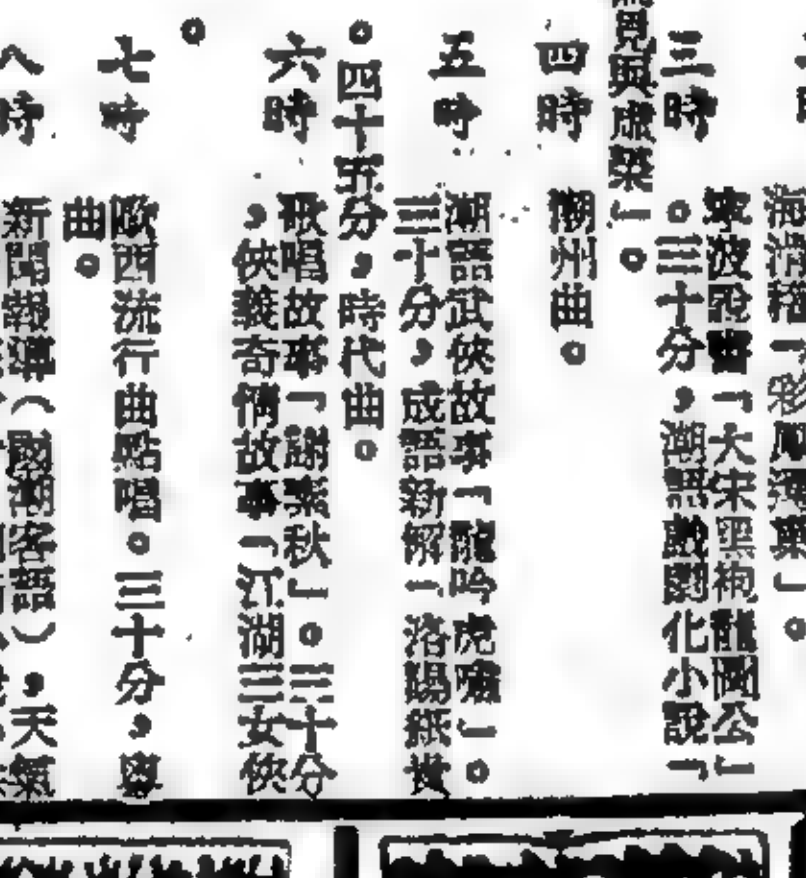 滑稽「彩鳳濁巢」。
三時 寧波說書「大宋黑袍龍圖公」
。三十分，潮語戲劇化小說「
見與虛榮」。
四時 潮州曲。
五時 潮語武俠故事「龍吟虎嘯」。
三十分，成語新解「洛陽紙貴
。四十五分，時代曲。
六時 歌唱故事「謝素秋」。三十分
，俠義奇情故事「江湖三女俠
。
七時 歐西流行曲點唱。三十分，粵
曲。
八時 新聞報導（國潮客語），天氣